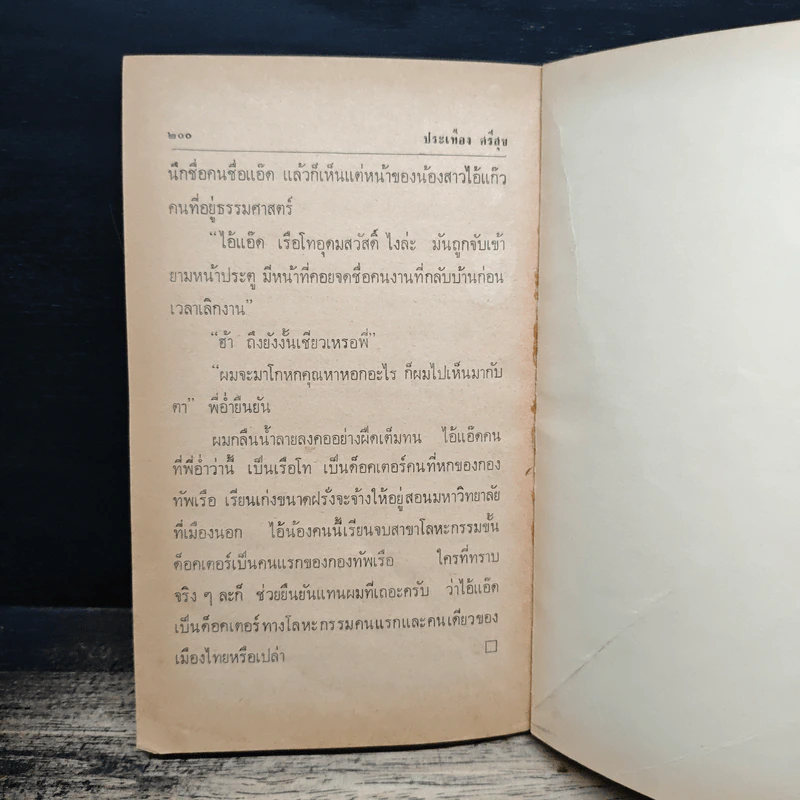 ๒๐๐ ประเทือง ศรีสุข
นึกชื่อคนชื่อแอ๊ด แล้วก็เห็นแต่หน้าของน้องสาวไอ้แก๊ว
คนที่อยู่ธรรมศาสตร์
“ไอ้แอ๊ด เรือโทอุดมสวัสดิ์ ไงล่ะ มันถูกจับเข้า
ยามหน้าประตู มีหน้าที่คอยจดชื่อคนงานที่กลับบ้านก่อน
เวลาเลิกงาน”
“ฮ้า ถึงยังงั้นเชียวเหรอพี่”
“ผมจะมาโกหกคุณหาหอกอะไร ก็ผมไปเห็นมากับ
ตา” พี่อ่ำยืนยัน
ผมกลืนน้ำลายลงคออย่างฝืดเต็มทน ไอ้แอ๊ดคน
ที่พี่อ่ำว่านี้ เป็นเรือโท เป็นด็อคเตอร์คนที่หกของกอง
ทัพเรือ เรียนเก่งขนาดฝรั่งจะจ้างให้อยู่สอนมหาวิทยาลัย
ที่เมืองนอก ไอ้น้องคนนี้เรียนจบสาขาโลหะกรรมขั้น
ด็อคเตอร์เป็นคนแรกของกองทัพเรือ ใครที่ทราบ
จริง ๆ ละก็ ช่วยยืนยันแทนผมทีเถอะครับ ว่าไอ้แอ๊ด
เป็นด็อคเตอร์ทางโลหะกรรมคนแรกและคนเดียวของ
เมืองไทยหรือเปล่า □